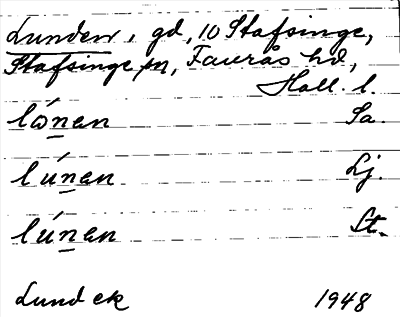 Lunden, gd, 10 Stafsinge,
Stafsinge sn, Faurås hd,
Hall. l.
lónen Sa.
lúnen Lj.
lúnen St.
Lund ek 1948